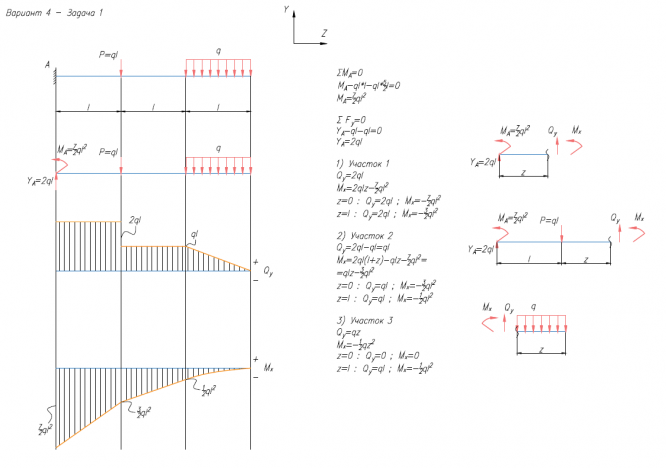 Вариант 4 - Задача 1
Y
Z
A
P=ql
q
l
l
l
M_A=7/2ql²
P=ql
q
Y_A=2ql
2ql
ql
+
Q_y
-
+
M_x
-
1/2ql²
3/2ql²
7/2ql²
ΣM_A=0
M_A-ql*l-ql*5/2l=0
M_A=7/2ql²
Σ F_y=0
Y_A-ql-ql=0
Y_A=2ql
1) Участок 1
Q_y=2ql
M_x=2qlz-7/2ql²
z=0 : Q_y=2ql ; M_x=-7/2ql²
z=l : Q_y=2ql ; M_x=-3/2ql²
2) Участок 2
Q_y=2ql-ql=ql
M_x=2ql(l+z)-qlz-7/2ql²=
=qlz-3/2ql²
z=0 : Q_y=ql ; M_x=-3/2ql²
z=l : Q_y=ql ; M_x=-1/2ql²
3) Участок 3
Q_y=qz
M_x=-1/2qz²
z=0 : Q_y=0 ; M_x=0
z=l : Q_y=ql ; M_x=-1/2ql²
M_A=7/2ql²
Q_y
M_x
Y_A=2ql
z
M_A=7/2ql²
P=ql
Q_y
M_x
Y_A=2ql
l
z
M_x
Q_y
q
z